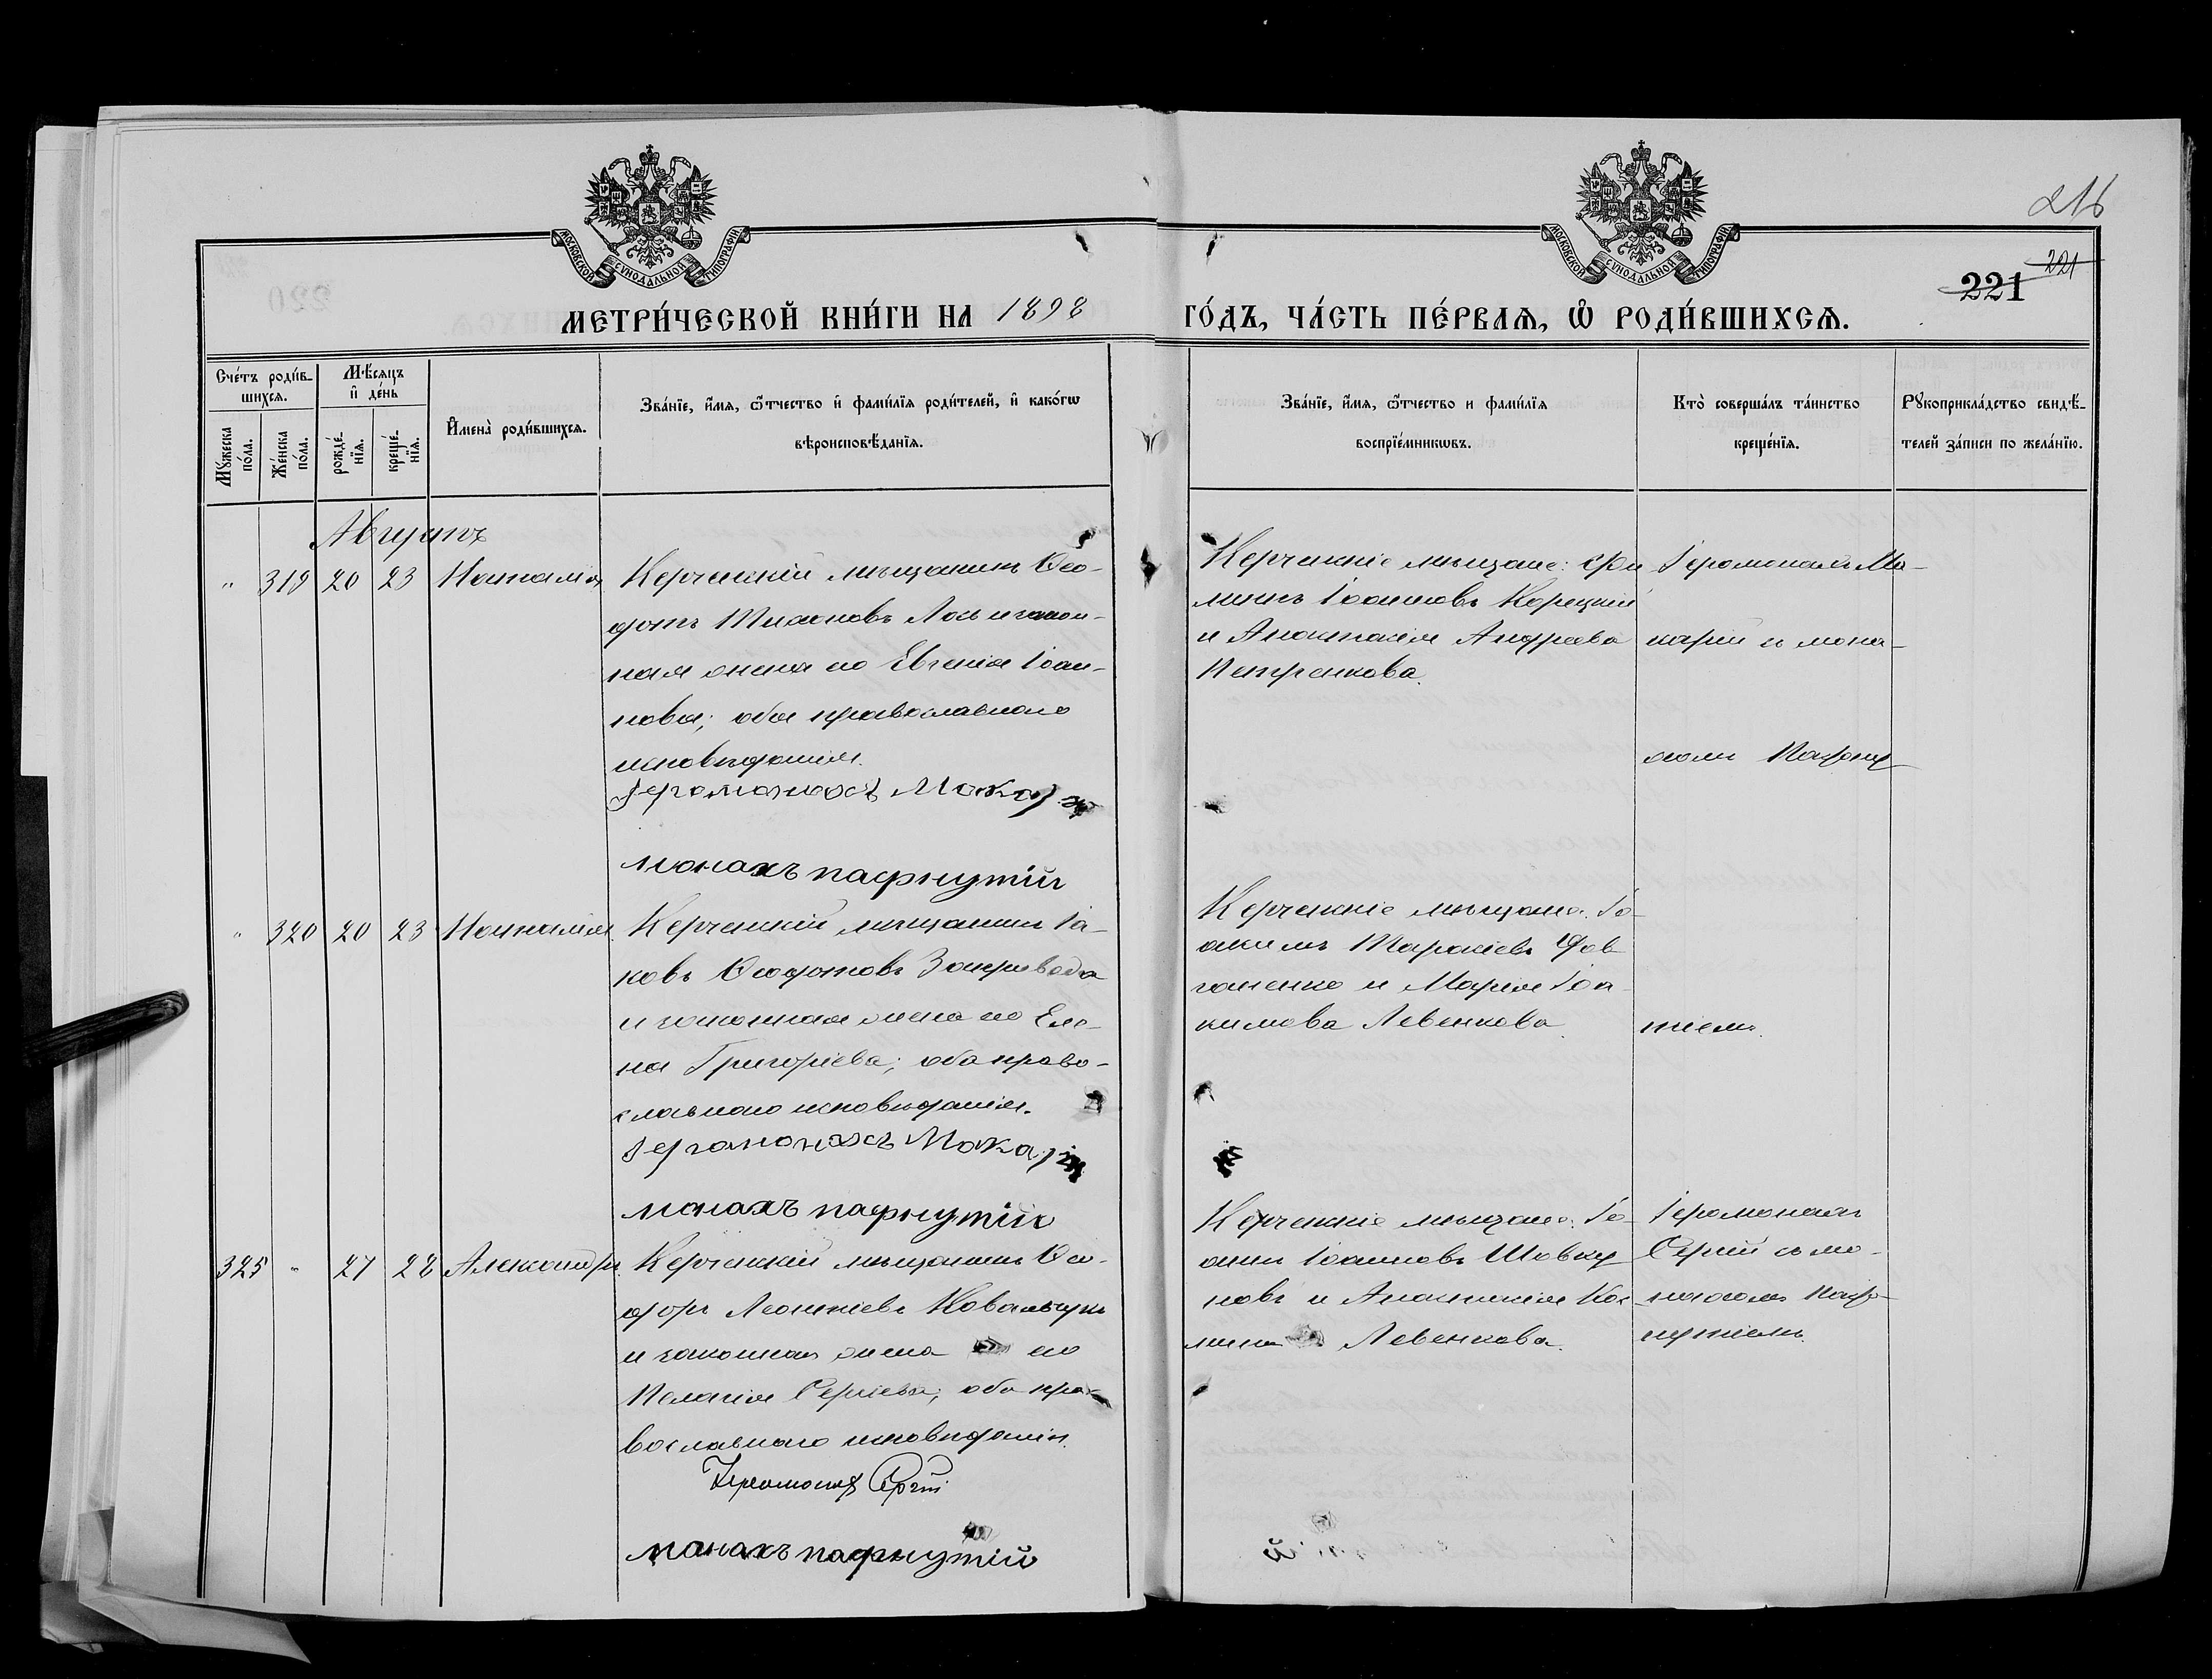 216
221
221
МОСКОВСКОЙ СѴНОДАЛЬНОЙ ТИПОГРАФІИ
МОСКОВСКОЙ СѴНОДАЛЬНОЙ ТИПОГРАФІИ
МЕТРИ́ЧЕСКОЙ КНИ́ГИ НА 1898 ГО́ДЪ, ЧА́СТЬ ПЕ́РВАѦ, Ѡ҆ РОДИ́ВШИХСѦ.
Сче́тъ роди́в-
шихсѧ.
Мꙋ́жеска по́ла.
Же́нска по́ла.
Мѣ́сѧцъ и҆ де́нь
рожде́-нїѧ.
креще́-нїѧ.
И҆мена̀ роди́вшихсѧ.
Зва́нїе, и҆́мѧ, ѻ҆́тчество и҆ фами́лїѧ роди́телей, и҆ како́гѡ
вѣроисповѣ́данїѧ.
Зва́нїе, и҆́мѧ, ѻ҆́тчество и фами́лїѧ
воспрїе́мникѡвъ.
Кто̀ соверша́лъ та́инство
креще́нїѧ.
Рꙋкоприкла́дство свидѣ́-
телей за́писи по жела́нїю.
Августъ
" 319 20 23 Наталія
Керченскій мѣщанинъ Ѳео-
дотъ Тихоновъ Лось и закон-
ная жена его Евгенія Іоан-
нова; оба православнаго
исповѣданія.
Іеромонахъ Макарій
монахъ пафнутій
Керченскіе мѣщане: Фи
липпъ Іоанновъ Корецкій
и Анастасія Андреева
Петренкова.
Іеромонахъ Ма-
карій съ мона-
хомъ Пафну-
" 320 20 23 Наталія.
Керченскій мѣщанинъ Іа-
ковъ Ѳеодотовъ Закривода
и законная жена его Еле-
на Григоріева; оба право-
славнаго исповѣданія.
Іеромонахъ Макарій
монахъ пафнутій
Керченскіе мѣщане: Іо-
акимъ Тарасіевъ
и Марія Іоа
кимова Левенкова.
тіемъ.
325 " 27 28 Александръ.
Керченскій мѣщанинъ Ѳео-
доръ Леонтіевъ Ковальчукъ
и законная жена его
Пелагія Сергіева; оба пра-
вославнаго исповѣданія.
Іеромонахъ Сергій
монахъ пафнутій
Керченскіе мѣщане: Іо-
аннъ Іоанновъ Шовку
новъ и Анастасія
Левенкова.
Іеромонахъ
Сергій съ мо-
нахомъ Паф-
нутіемъ.